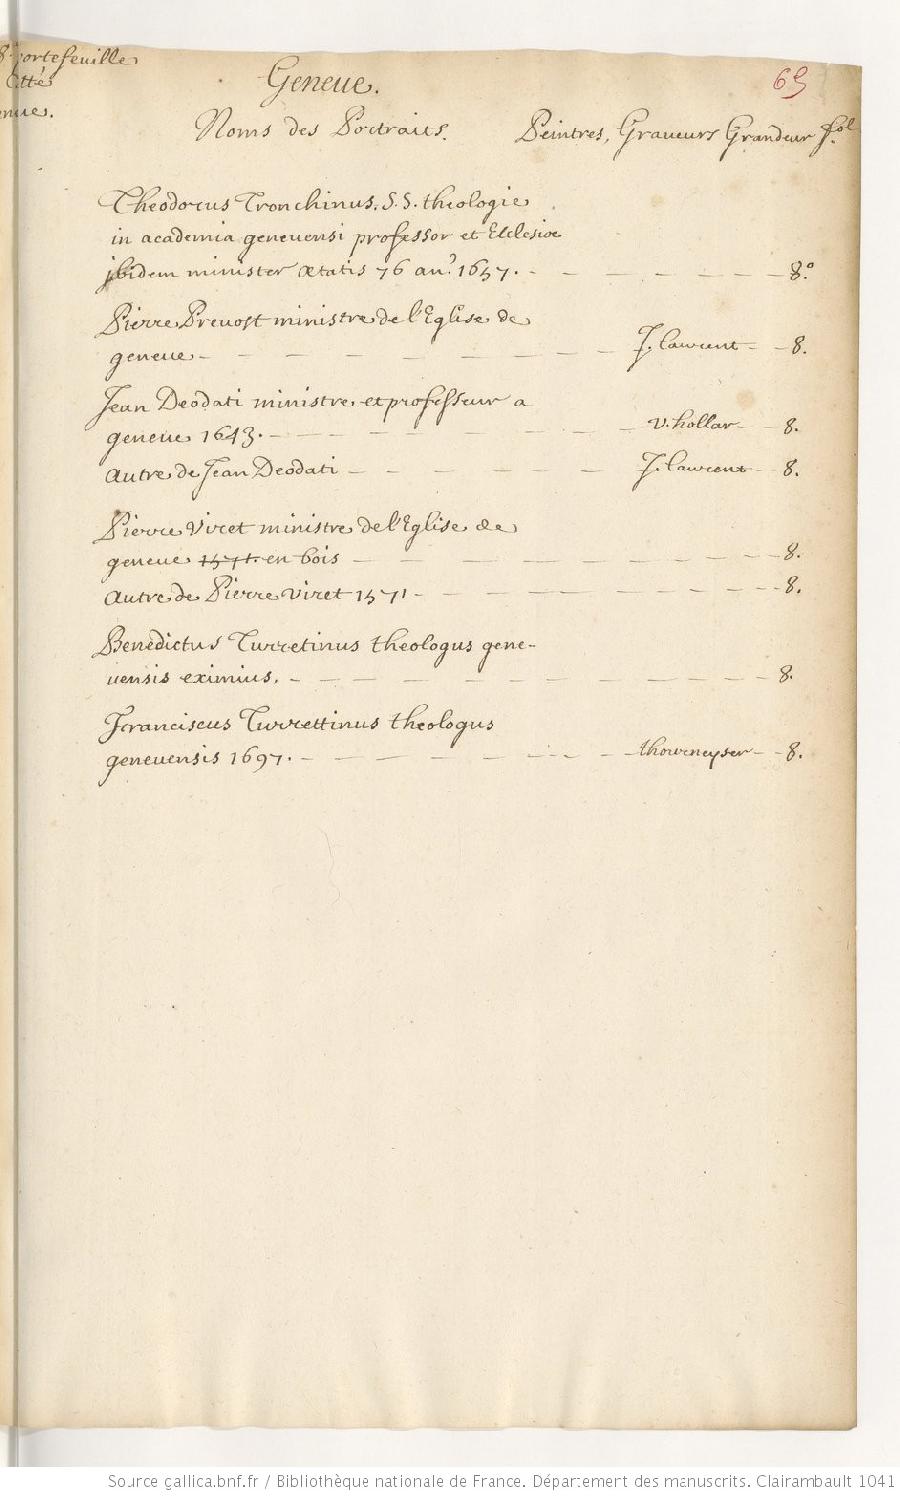 8. portefeuille
Cotté
65
Geneue.
Noms des Portraits. Peintres, Graueurs Grandeur fol.
Theodorus Tronchinus. S. S. theologie
in academia geneuensi professor et Ecclesiæ
jbidem minister ætatis 76 an.º 1657. - - - - - - - 8.º
Pierre Preuost ministre de l'Eglise de
geneue - - - - - - - - J. laurent - - 8.
Jean Deodati ministre et professeur a
geneue 1643. - - - - - - - v. hollar - - 8.
autre de Jean Deodati - - - - - - J. laurent - - 8.
Pierre Viret ministre de l'Eglise de
geneue 1571. en bois - - - - - - - - 8.
autre de Pierre Viret 1571 - - - - - - - - 8.
Benedictus Turretinus theologus gene-
uensis eximius. - - - - - - - - - 8.
Franciscus Turrettinus theologus
geneuensis 1697. - - - - - - - thourneyser - - 8.
Source gallica.bnf.fr / Bibliothèque nationale de France. Département des manuscrits. Clairambault 1041